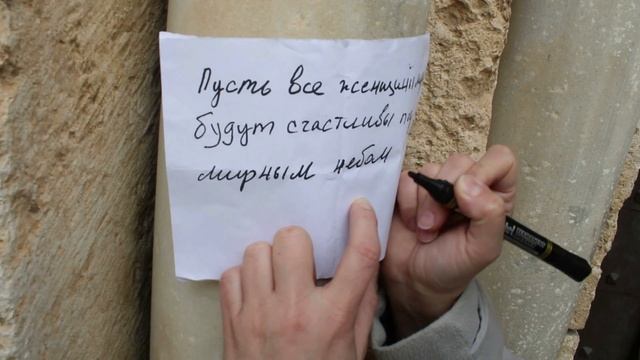 Пусть все женщины
будут счастливы
мирным небом